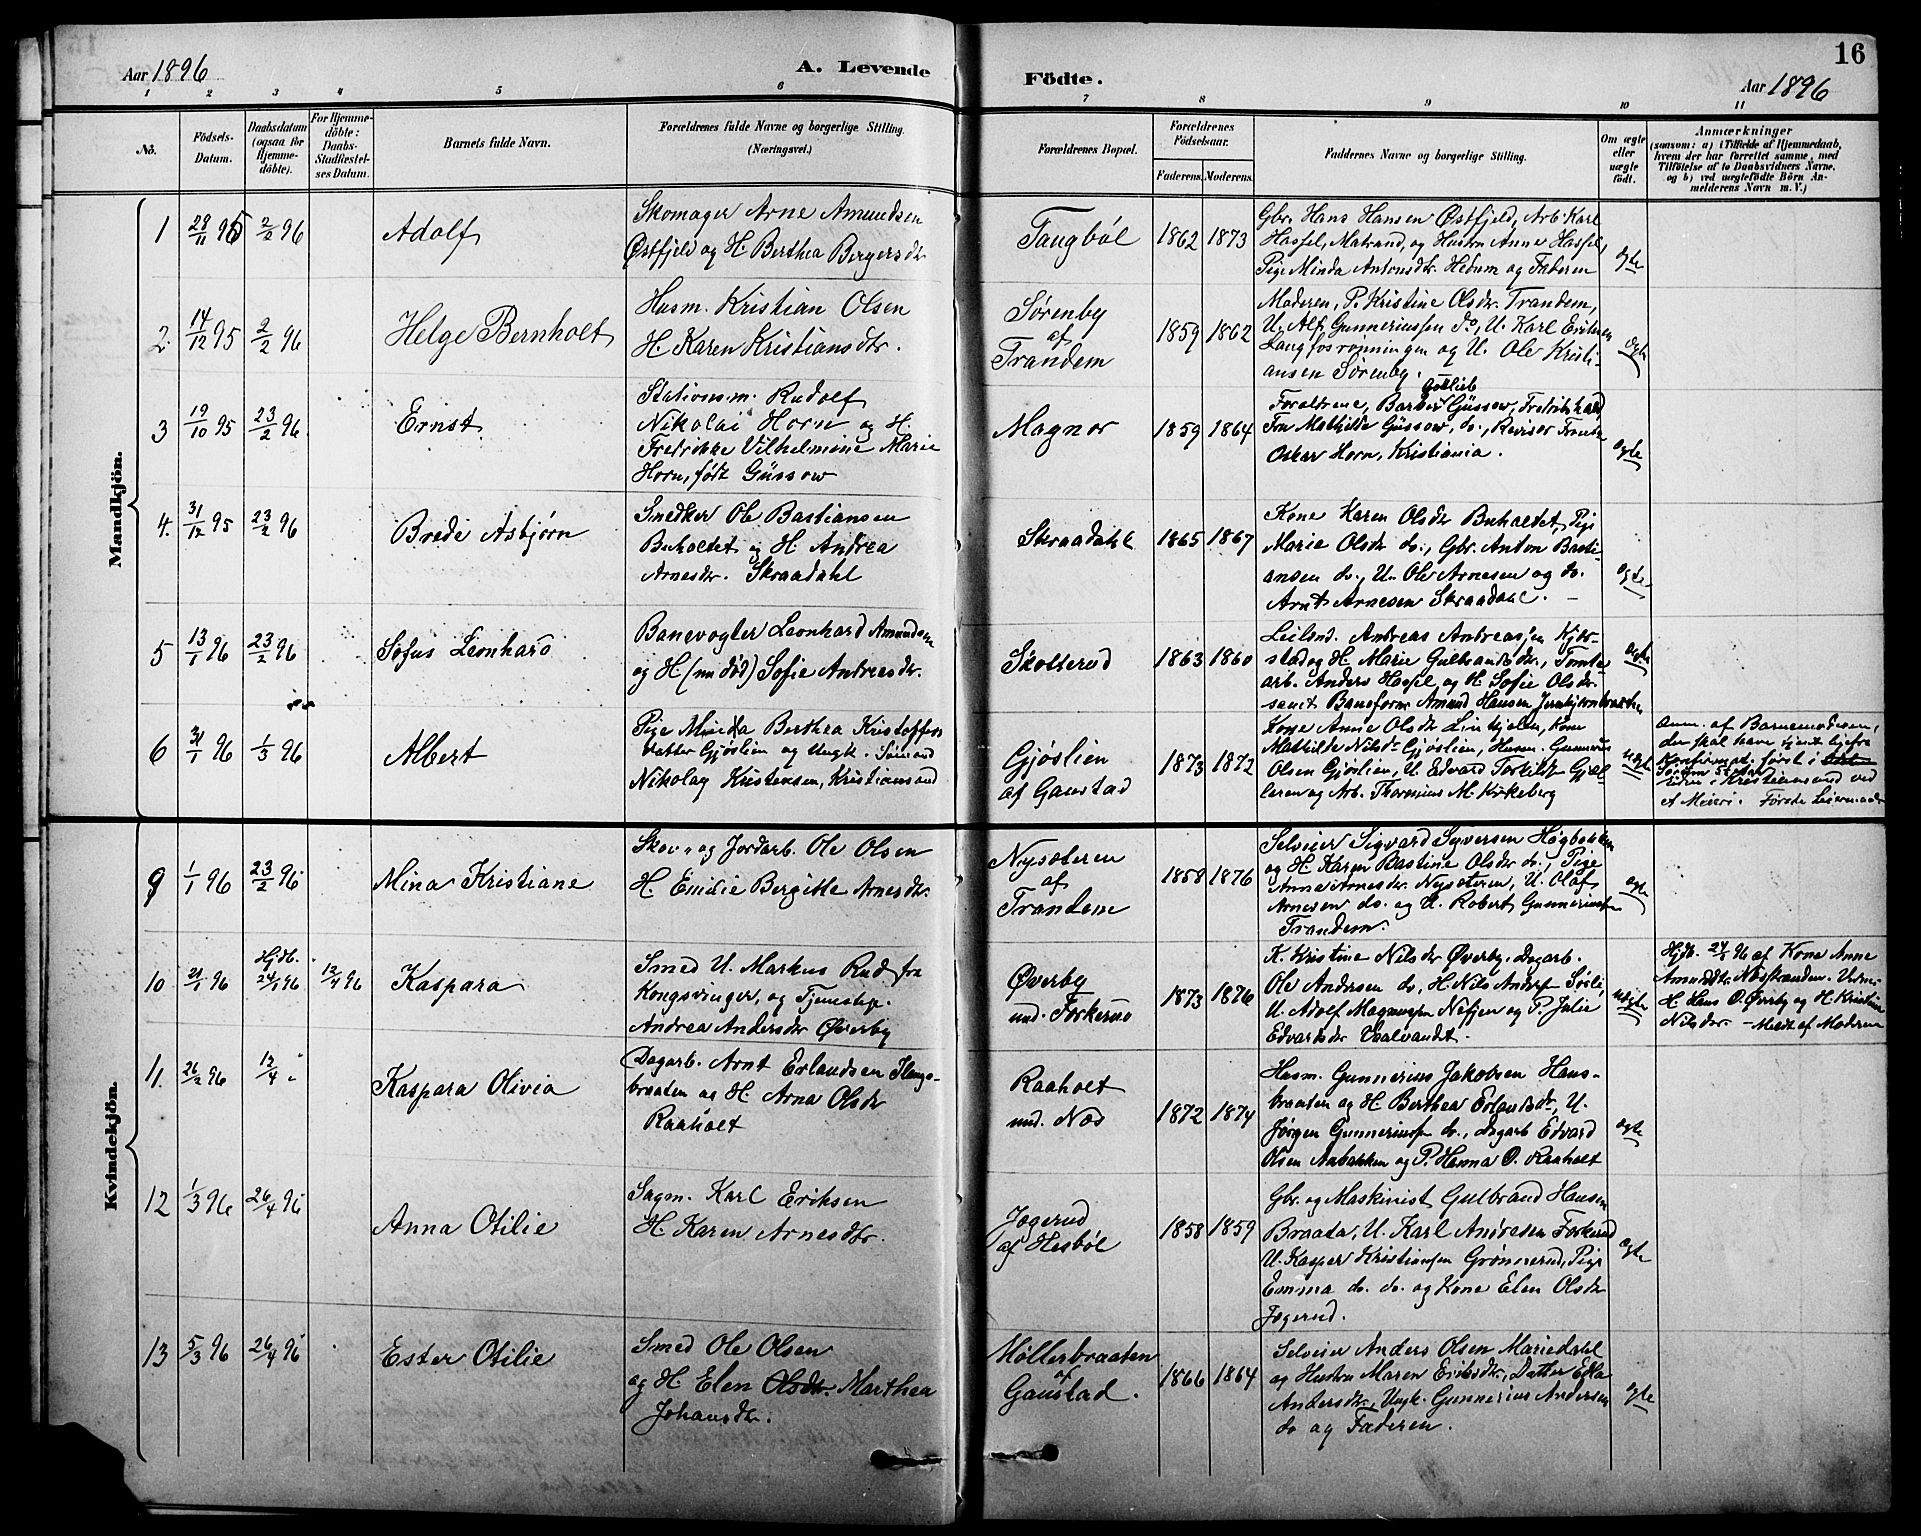 16
Aar 1896
A. Levende
Födte.
Aar 1896
1 2 3 4 5 6 7 8 9 10 11
No.
Födsels-
Datum.
Daabsdatum
(ogsaa for
Hjemme-
döbte).
For Hjemme-
döbte:
Daabs-
Stadfæstel-
ses Datum.
Barnets fulde Navn.
Forældrenes fulde Navne og borgerlige Stilling.
(Næringsvei.)
Forældrenes Bopæl.
Forældrenes
Födselsaar.
Faderens. Moderens.
Faddernes Navne og borgerlige Stilling.
Om ægte
eller
uægte
födt.
Anmærkninger
(saasom: a) i Tilfælde af Hjemmedaab,
hvem der har forrettet samme, med
Tilföielse af to Daabsvidners Navne,
og b) ved uægtefödte Börn An-
melderens Navn m. V.)
Mandkjön.
1 28/11 95 2/2 96
Adolf
Skomager Arne Amundsen
Østfjeld og H. Berthea Bergersdtr
Tangbøl
1862 1873
Gbr. Hans Hansen Østfjeld, Arb. Karl
Hassel, Matrand, og Hustru Anne Hassel,
Pige Minda Antonsdtr. Hedum og Faderen
ægte
2. 14/12 95 2/2 96
Helge Bernholt
Husm. Kristian Olsen
H. Karen Kristiansdtr.
Sørenby
af
Trandem
1859 1862
Moderen, P. Kristine Olsdr. Trandem,
U. Alf Gunneriussen do, U. Karl Eriksen
Langfosrønningen og U. Ole Kristi-
ansen Sørenby.
ægte
3 19/10 95 23/2 96
Ernst
Stationsm. Rudolf
Nikolai Horn og H.
Fredrikke Vilhelmine Marie
Horn, født Güssow
Magnor
1859 1864
Gotlieb
Forældrene, Barber Güssow, Fredrikshald,
Fru Mathilde Güssow, do., Revisor Frantz
Oskar Horn, Kristiania.
ægte
4. 31/12 95 23/2 96
Brede Asbjørn
Snedker Ole Bastiansen
Buholtet og H. Andrea
Arnesdtr. Skraadahl
Skraadahl
1865 1867
Kone Karen Olsdtr Buholtet, Pige
Marie Olsdtr do., Gbr. Anton Basti-
ansen do., U. Ole Arnesen og do.
Arnt Arnesen Skraadal. –
ægte
5 13/1 96 23/2 96
Sofus Leonhard
Banevogter Leonhard Amundsen
og H. (nu død) Sofie Andreasdtr.
Skotterud
1863 1860
Leilend. Andreas Andreassen Kjær-
stad og H. Marie Gulbrandsdtr., Tomte-
arb. Anders Hassel og H. Sofie Olsdtr.
samt Baneform. Amund Hansen
ægte
6 31/1 96 1/3 96
Albert
Pige Minda Berthea Kristoffers-
datter Gjøslien og Ungk. Sømand
Nikolay Kristensen, Kristiansand
Gjøslien
af Gaustad
1873 1872
Kone Anne Olsdtr Linkjølen, Kone
Mathilde Nilsdtr Gjøslien, Husm. Gunnerius
Olsen Gjøslien, U. Edvard Torkilds.
og Arb. Thorenius M. Kirkeberg
uægte
Anm. af Barnemoderen,
der skal have tjent
Konfirmat. først i
siden i Kristiansund ved
Første Leiermaal
Kvindekjön.
9 1/1 96 23/2 96
Mina Kristiane
Skov- og Jordarb. Ole Olsen
H. Emilie Bergitte Arnesdtr.
Nysæteren
af
Trandem
1858 1876
Selveier Sigvard Syversen Høgbakken
og H. Karen Bastine Olsdtr do., Pige
Anne Arnesdtr. Nysæteren, U. Olaf
Arnesen do. og U. Robert Gunneriussen
Trandem.
ægte
10 21/1 96 Hjdb. 24/1 96 12/4 96
Kaspara
Smed U. Markus Rud fra
Kongsvinger, og Tjenestep.
Andrea Andersdtr Øverby
Øverby
und. Forkerud
1873 1876
K. Kristine Nilsdtr Øverby, Dagarb.
Ole Andersen do, H. Nils Anders. Søsli,
U. Adolf Magnussen Nefjen og P. Julie
Edvardsdtr Vaalvandet.
uægte
Hjdb. 24/1 96 af Kone Anne
Amundsdtr. Næstranden. Vidner
H. Hans O. Øverby og H. Kristine
Nilsdtr. – Meldt af Moderen
11. 26/2 96 12/4 "
Kaspara Olivia
Dagarb. Arnt Erlandsen Hangs-
braaten og H. Arna Olsdtr
Raaholt
Raaholt
und. Næs
1872 1874
Husm. Gunnerius Jakobsen Hans-
braaten og H. Berthea Erlandsdtr, U.
Jørgen Gunneriussen do., Dagarb Edvard
Olsen Aabakken og P. Hanna O. Raaholt
ægte
12 1/3 96 26/4 96
Anna Otilie
Sagm. Karl Eriksen
H. Karen Arnesdtr.
Jegerud
af Hesbøl
1858 1859
Gbr. og Maskinist Gulbrand Hansen
Braata, U. Karl Andresen Forkerud
U. Kasper Kristiansen Grønnerud, Pige
Emma do. do. og Kone Elen Olsdtr
Jegerud.
ægte
13 5/3 96 26/4 96
Ester Otilie
Smed Ole Olsen
og H. Elen Olsdtr. Marthea
Johansdtr.
Møllerbraaten
af
Gaustad.
1866 1864
Selveier Anders Olsen Mariedahl
og Hustru Maren Eriksdtr, Datter Edla
Andersdtr, Ungk. Gunnerius Andersen
do og Faderen.
ægte